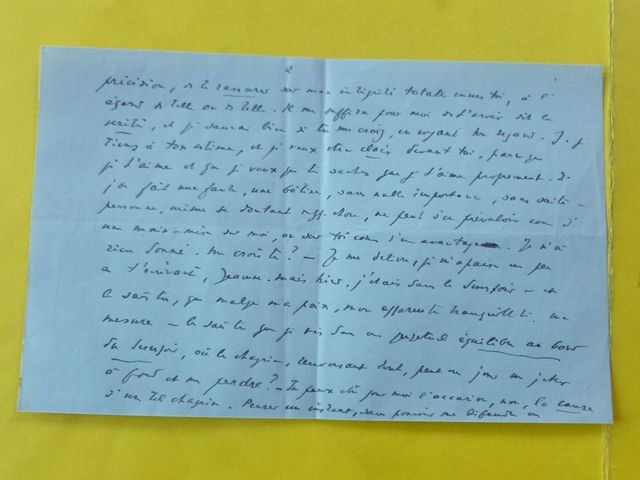 2
précision, de te rassurer sur mon intégrité totale envers toi, à l'
égard de telle ou de telle. Il me suffira pour moi de t'avoir dit la
vérité, et je saurai bien si tu me crois, en voyant ton regard. Je
tiens à ton estime, et je veux être clair devant toi, parce que
je t'aime et que je veux que tu saches que je t'aime proprement. Si
j'ai fait une faute, une bêtise, sans nulle importance, sans suite –
personne, même se doutant de chose, ne peut s'en prévaloir comme d'
une main-mise sur moi, ou sur toi comme d'un avantage. Je n'ai
rien donné. Me crois-tu ? – Je me délivre, je m'apaise un peu
en t'écrivant, Jeanne. Mais hier, j'étais dans le désespoir – et
le sais-tu, que malgré ma paix, mon apparente tranquillité, ma
mesure – le sais-tu que je vis dans un perpétuel équilibre au bord
du désespoir, où le chagrin, renversant tout, peut un jour me jeter
à fond et me perdre ? – Tu peux être pour moi l'occasion, non, la cause
d'un tel chagrin. Penser un instant, sans pouvoir me défendre ou